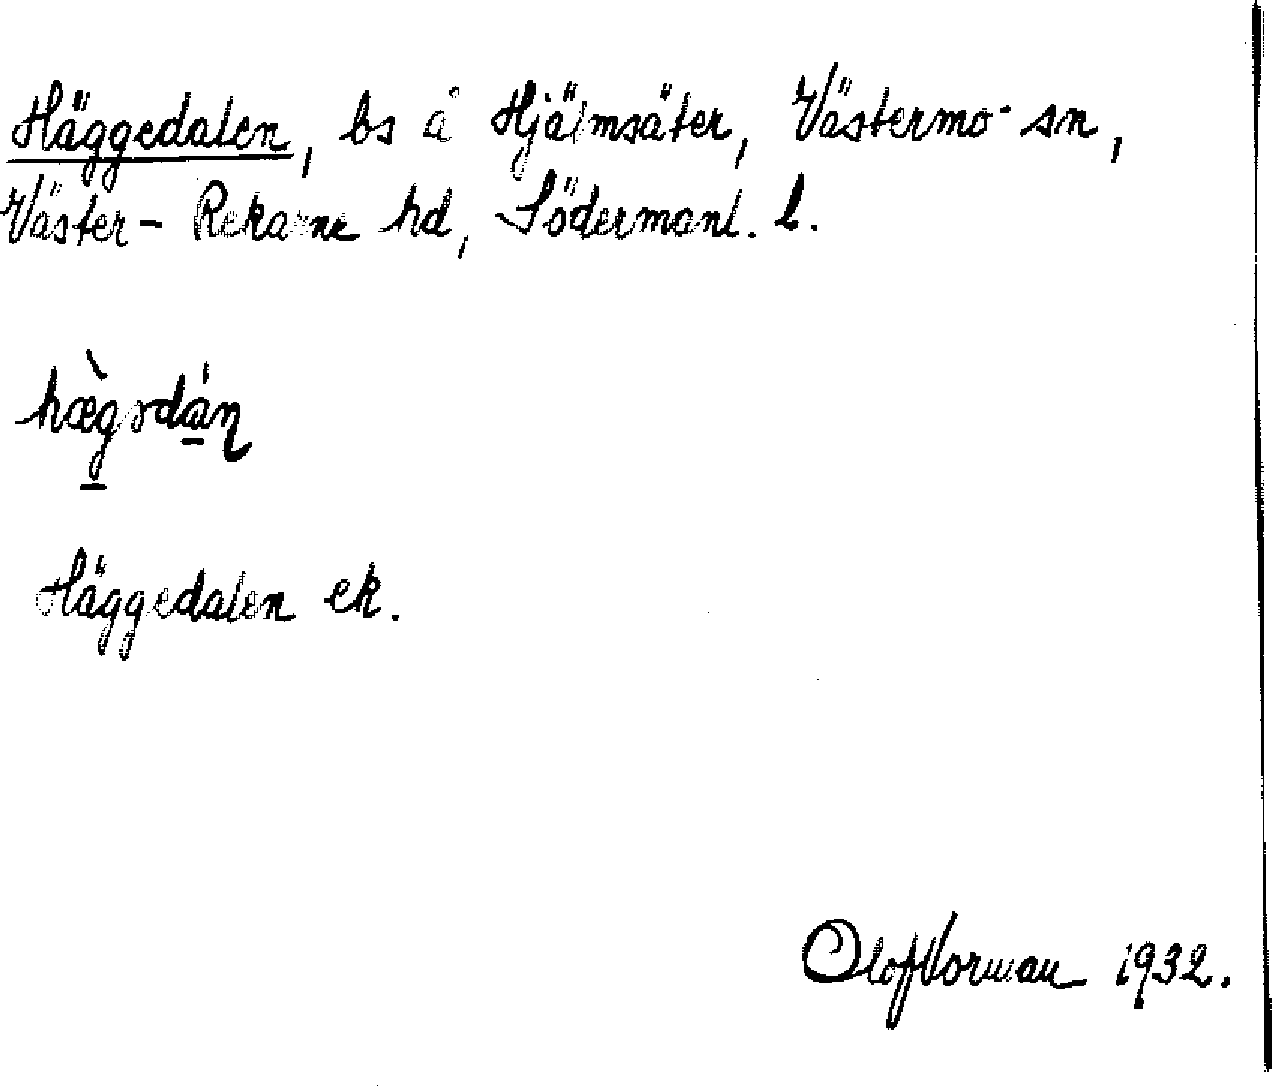 Häggedalen, bs å Hjälmsäter, Västermo sn,
Väster-Rekarne hd, Södermanl. l.
Häggedalen ek.
Olof Norman 1932.